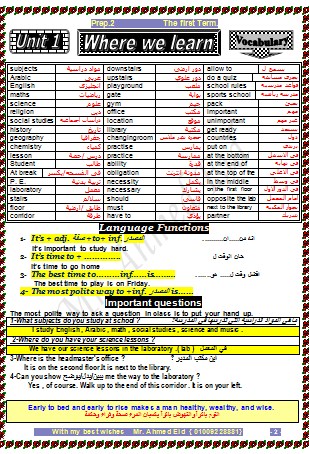 Prep.2 The first Term.
Unit 1 Where we learn Vocabulary
subjects مواد دراسية downstairs دور أرضي allow to يسمح لـ
Arabic عربي upstairs دور علوي do a quiz
English انجليزى playground ملعب school rules قواعد مدرسية
maths رياضيات gate بوابة sports school مدرسة رياضية
science علوم gym جيم pack يعبئ
religion دين office مكتب important مهم
social studies دراسات اجتماعية location موقع unimportant غير مهم
history تاريخ library مكتبة get ready يستعد
geography جغرافيا changingroom countries دول
chemistry كيمياء practise يمارس put on يرتدى
lesson درس / حصة practise ممارسة at the bottom
Student طالب ability القدرة at the end of في نهاية
At break obligation at the top of في أعلى
P. E. تربية بدنية necessity in the middle في وسط
laboratory معمل necessary on the first floor في الدور الأول
stairs سلالم should opposite the lab أمام المعمل
floor must next to the library بجوار المكتبة
corridor طرقة have to partner شريك
Language Functions
1- It's + adj. صفة +to+ inf. المصدر
it's important to study hard.
2- It's time to + حان الوقت ل
It's time to go home
3- The best time to.........inf......is........
The best time to play is on Friday.
4- The most polite way to +inf. المصدر is......
Important questions
The most polite way to ask a question in class is to put your hand up.
1-What subjects do you study at school?
I study English, Arabic , math , social studies , science and music .
2-Where do you have your science lessons ?
We have our science lessons in the laboratory .( lab ) في المعمل
3-Where is the headmaster's office ? أين مكتب المدير ؟
It is on the second floor.It is next to the library.
4-Can you show me the way to the laboratory ?
Yes , of course. Walk up to the end of this corridor . It is on your left.
Early to bed and early to rise makes a man healthy, wealthy, and wise.
With my best wishes Mr. Ahmed Eid ( 01009228881) - 2